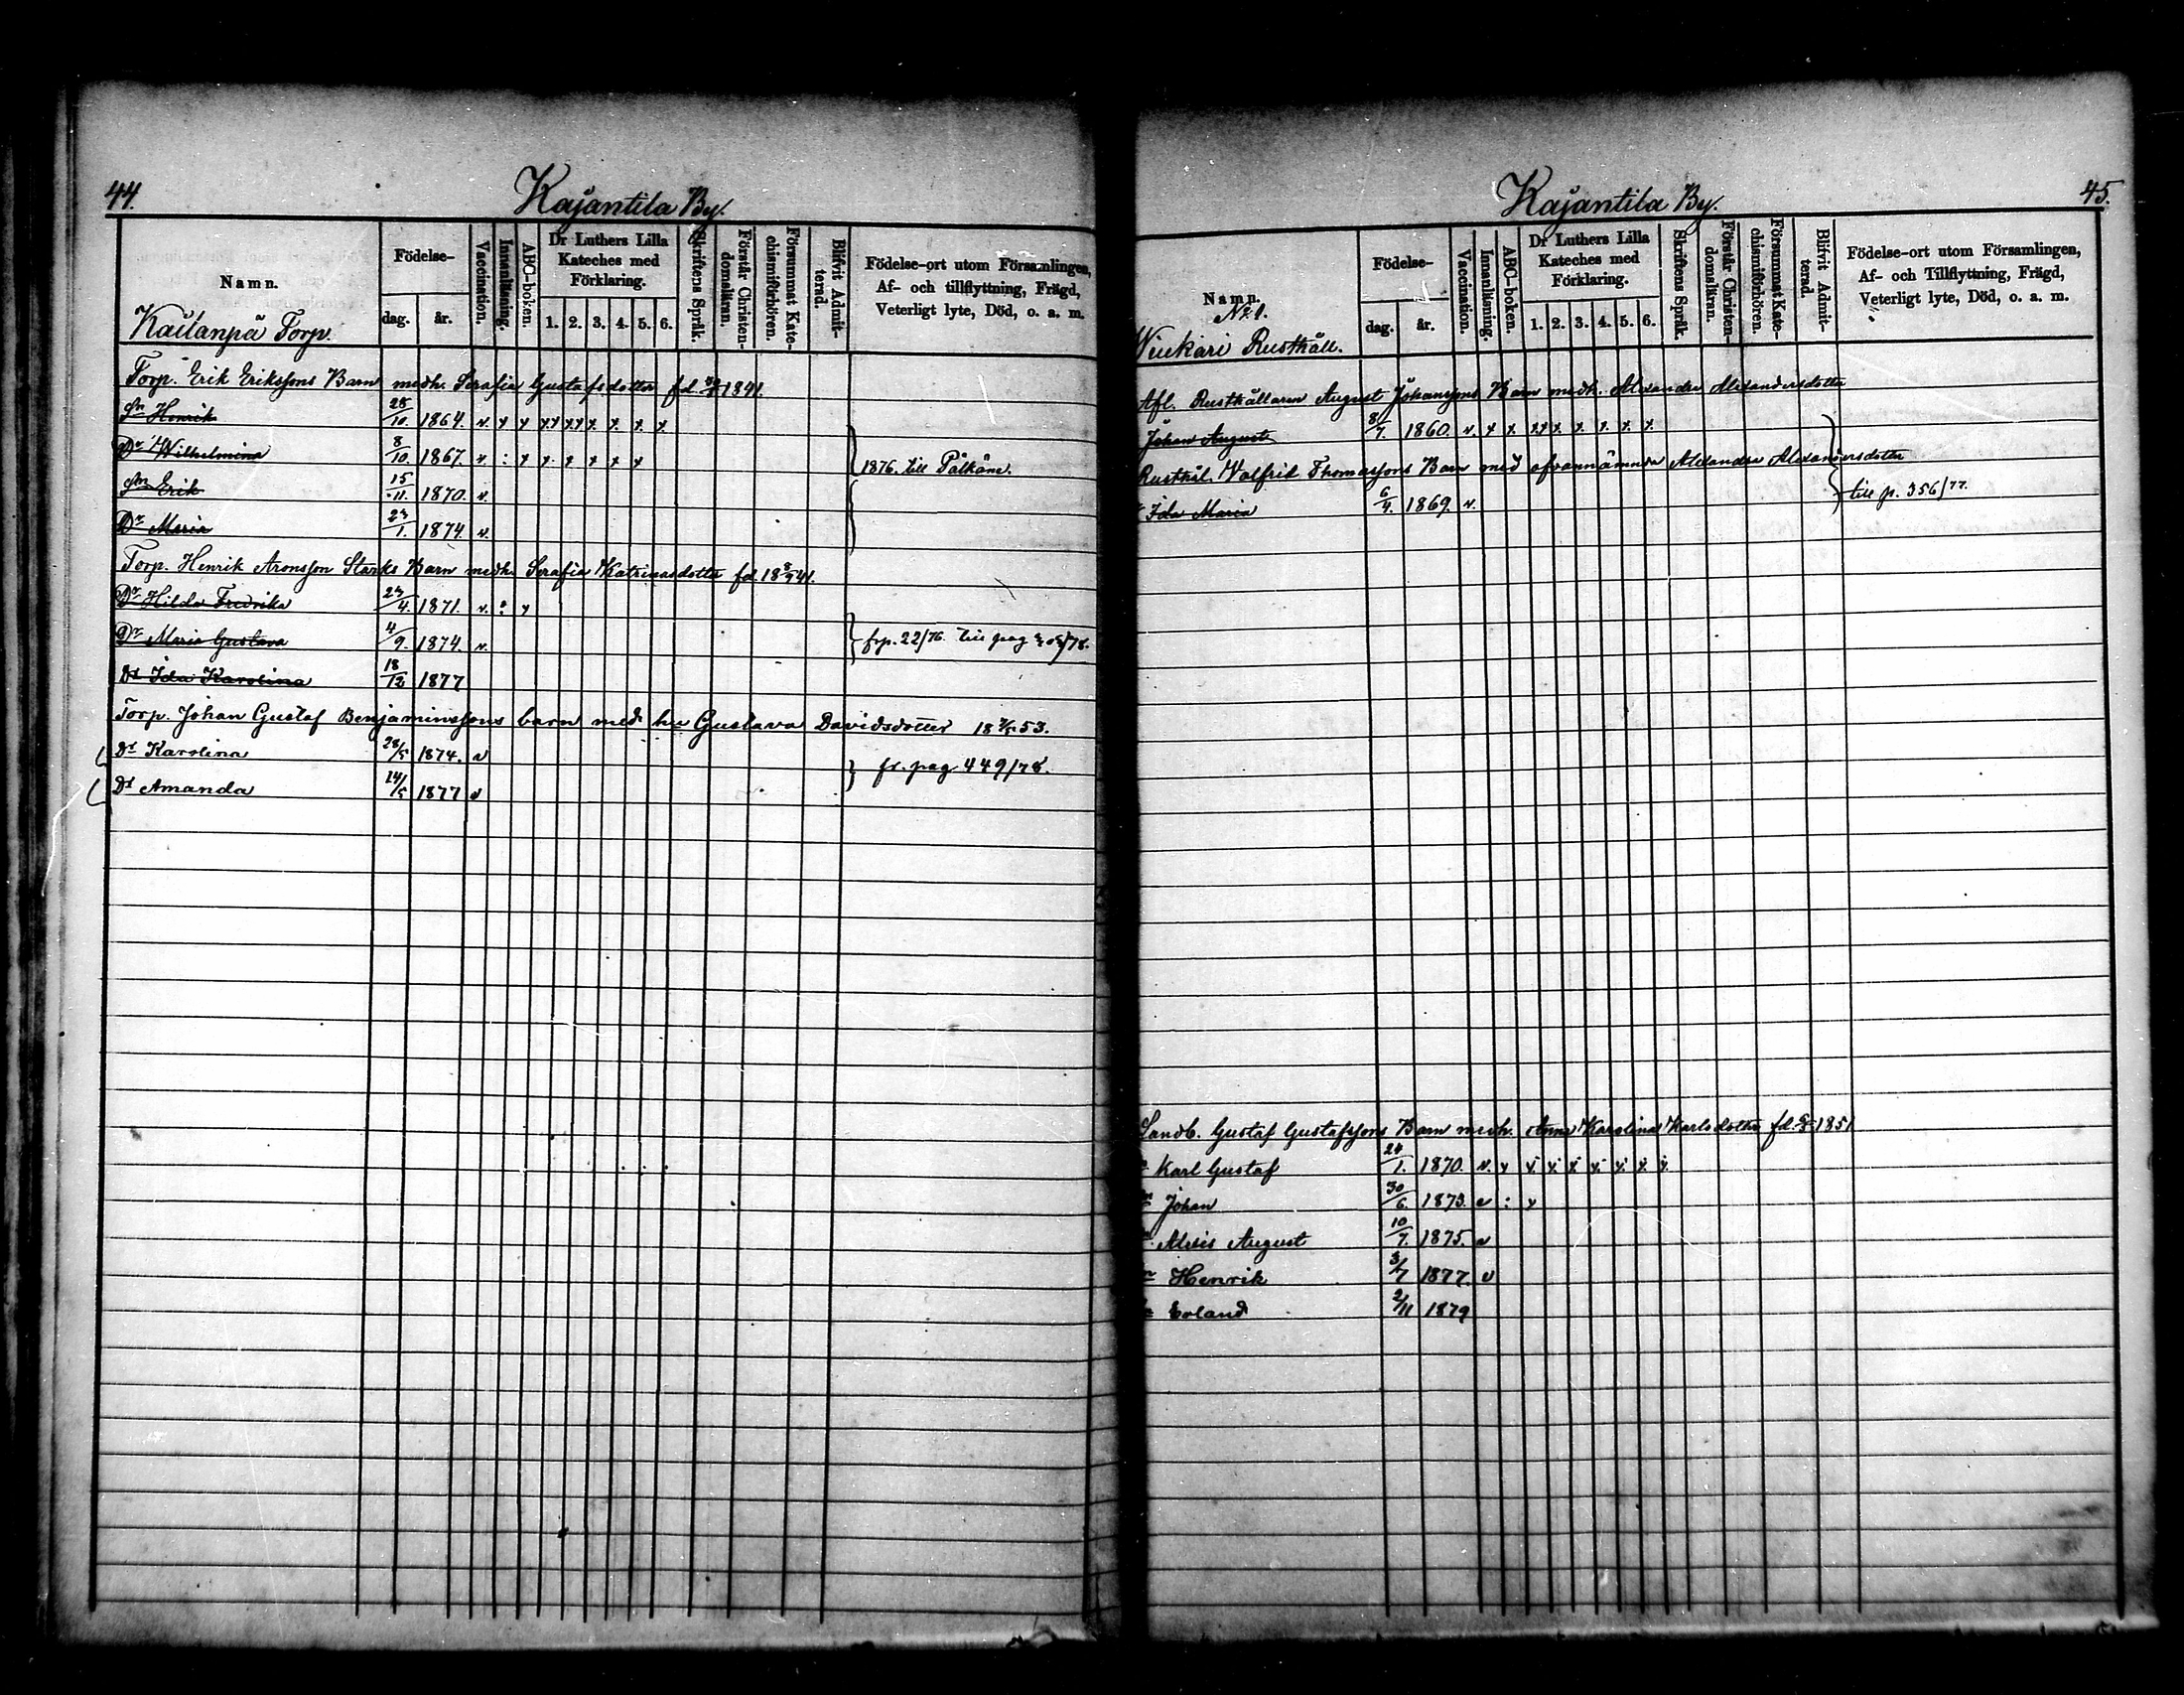 44.
Kajantila By.
Namn.
Födelse-
dag.
år.
Vaccination.
Innanläsning.
ABC-boken.
Dr Luthers Lilla Kateches med Förklaring.
1. 2. 3. 4. 5. 6.
Skriftens Språk.
Förstår Christendomsläran.
Försummat Katechismiförhören.
Blifvit Admitterad.
Födelse-ort utom Församlingen,
Af- och tillflyttning, Frägd,
Veterligt lyte, Död, o. a. m.
Kailanpä Torp.
Torp. Erik Erikssons Barn med h. Serafia Gustafsdotter fd. 1841.
Sn Henrik 28/10. 1864. v. x x xx xx x. x. x. x.
Dr Wilhelmina 8/10. 1867. v. : x x. x x x x
1876. till Pälkäne.
Sn Erik 15/11. 1870. v.
Dr Maria 23/1. 1874. v.
Torp. Henrik Aronsson Starks Barn med h. Serafia Katrinasdotter fd. 18 8/9 41.
Dr Hilda Fredrika 23/4. 1871. v. : x
Dr Maria Gustava 4/9. 1874. v.
frp. 22/76. till pag /78.
Dr Ida Karolina 18/12 1877
Torp. Johan Gustaf Benjaminssons barn med hu Gustava Davidsdotter 18 53.
Dr Karolina 28/5 1874. v
fr. pag 449/78.
Dr Amanda 14/5 1877 v
45.
Kajantila By.
Namn.
No 1.
Födelse-
dag.
år.
Vaccination.
Innanläsning.
ABC-boken.
Dr Luthers Lilla Kateches med Förklaring.
1. 2. 3. 4. 5. 6.
Skriftens Språk.
Förstår Christendomsläran.
Försummat Katechismiförhören.
Blifvit Admitterad.
Födelse-ort utom Församlingen,
Af- och Tillflyttning, Frägd,
Veterligt lyte, Död, o. a. m.
Wiukari Rusthåll.
Afl. Rusthållaren August Johanssons Barn med h. Alexandra Alexandersdotter
Johan August 8/7. 1860. v. x x. xx x. x. x. x. x.
Rusthål. Walfrid Thomassons Barn med ofvannämnda Alexandra Alexandersdotter
Ida Maria 6/4. 1869. v.
till p. 356/77.
Landb. Gustaf Gustafssons Barn med h. Anna Karolina Karlsdotter fd. 1851
Karl Gustaf 24/1. 1870. v. x x x x x x x
Johan 30/6. 1873. v : x
Alexis August 10/7. 1875. v
Henrik 3/7 1877. v
Erland 2/11 1879